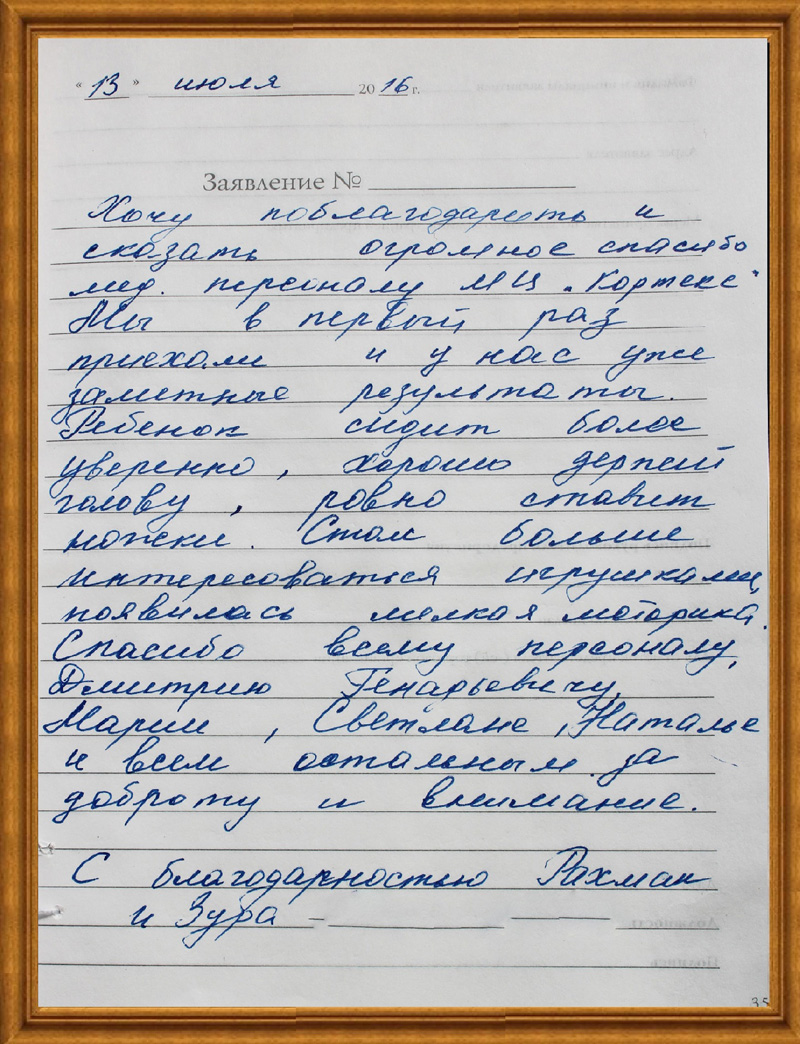 « 13 » июля 2016 г.
Заявление №
Хочу поблагодарить и
сказать огромное спасибо
мед. персоналу МЦ „Кортекс"
Мы в первый раз
приехали и у нас уже
заметные результаты.
Ребенок сидит более
уверенно, хорошо держит
голову, ровно ставит
ножки. Стал больше
интересоваться игрушками,
появилась мелкая моторика.
Спасибо всему персоналу,
Дмитрию Генарьевичу,
Марии, Светлане, Наталье
и всем остальным за
доброту и внимание.
С благодарностью Рахман
и Зура
35